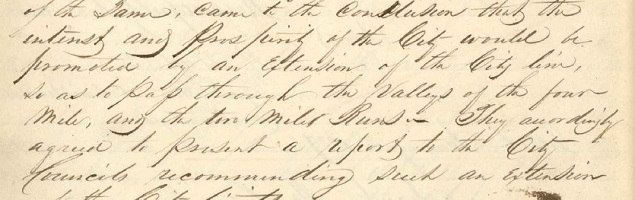 of the Same, came to the Conclusion that the
interest and prosperity of the City would be
promoted by an Extension of the City line,
so as to pass through the Valleys of the four
Mile, and the two Miles Runs – They accordingly
agreed to present a report to the City
Councils recommending such an Extension
of the City limits